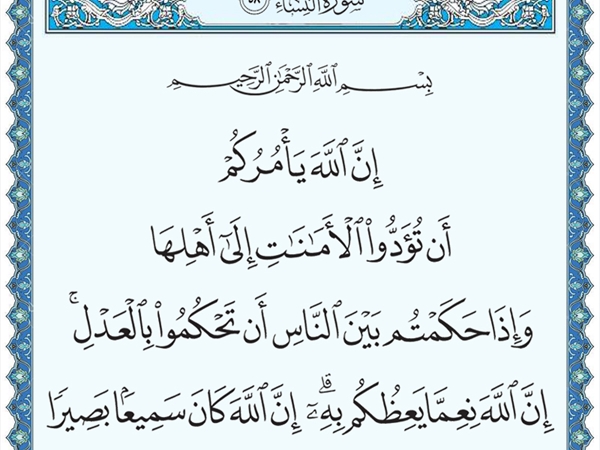 سورة النساء ٥٨
بِسْمِ ٱللَّهِ ٱلرَّحْمَٰنِ ٱلرَّحِيمِ
إِنَّ ٱللَّهَ يَأْمُرُكُمْ
أَن تُؤَدُّوا۟ ٱلْأَمَٰنَٰتِ إِلَىٰٓ أَهْلِهَا
وَإِذَا حَكَمْتُم بَيْنَ ٱلنَّاسِ أَن تَحْكُمُوا۟ بِٱلْعَدْلِ ۚ
إِنَّ ٱللَّهَ نِعِمَّا يَعِظُكُم بِهِۦٓ ۗ إِنَّ ٱللَّهَ كَانَ سَمِيعًۢا بَصِيرًا